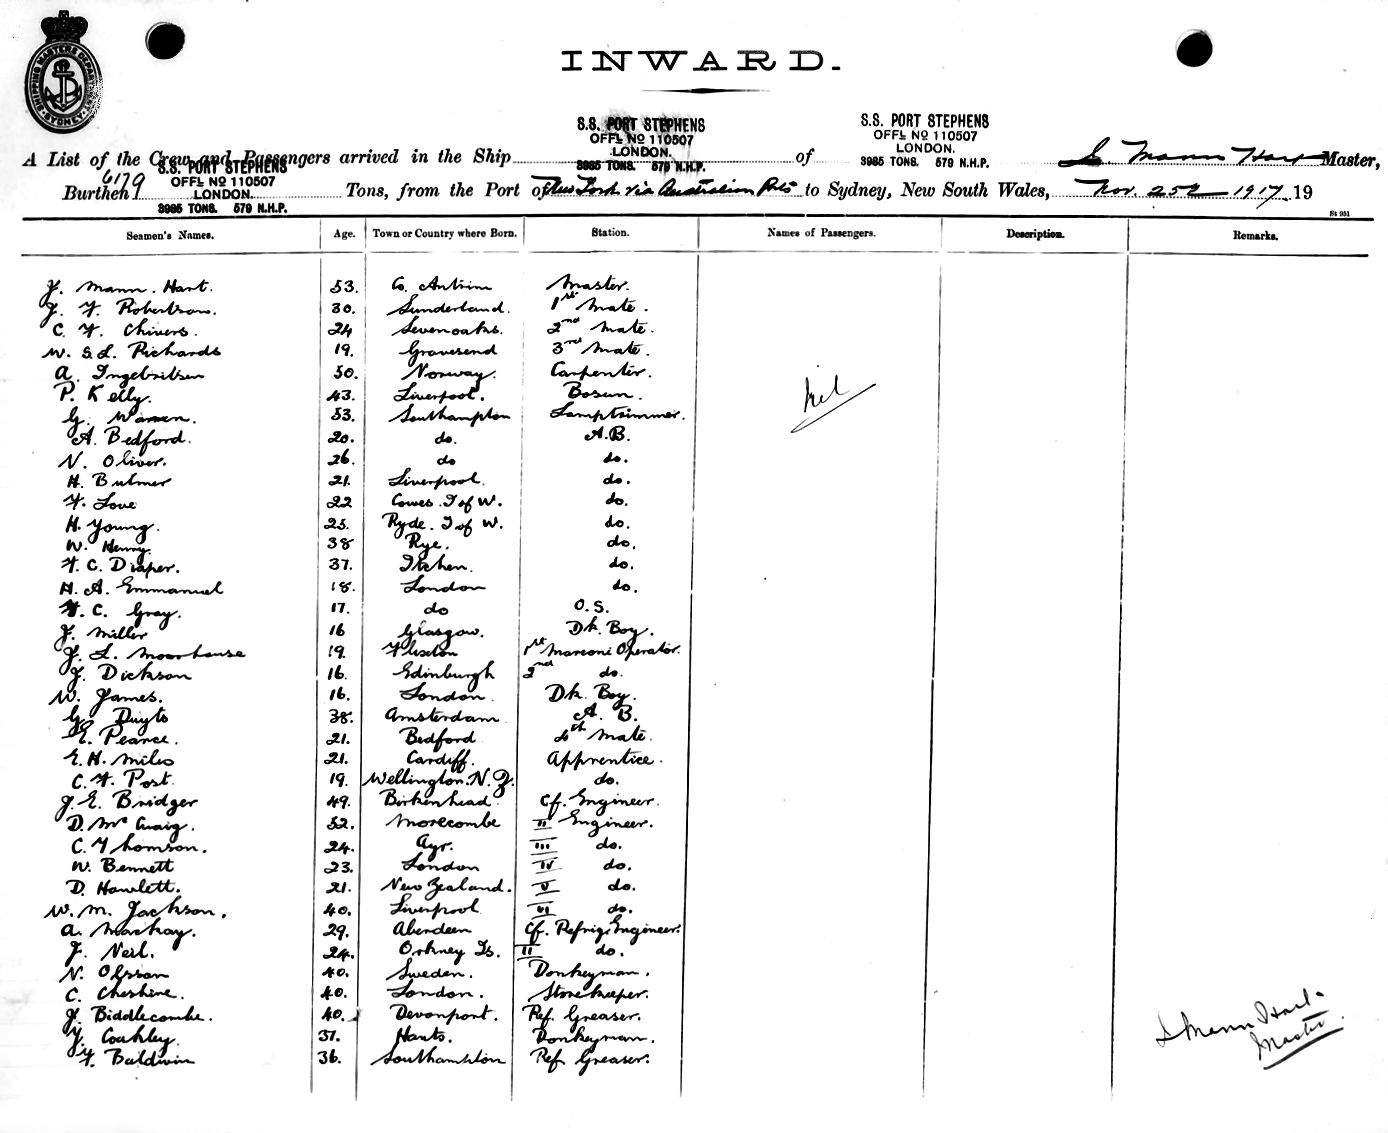 SHIPPING MASTERS DEPARTMENT
SYDNEY
INWARD.
S.S. PORT STEPHENS
OFFL NO 110507
LONDON.
3985 TONS. 579 N.H.P.
S.S. PORT STEPHENS
OFFL NO 110507
LONDON.
3985 TONS. 579 N.H.P.
A List of the Crew and Passengers arrived in the Ship of Mann Hart Master,
S.S. PORT STEPHENS
OFFL NO 110507
LONDON.
3985 TONS. 579 N.H.P.
Burthen 6179 Tons, from the Port of New York via Australian Pts to Sydney, New South Wales, Nov. 25th 1917. 19
St 951
Seamen's Names. Age. Town or Country where Born. Station. Names of Passengers. Description. Remarks.
J. Mann Hart. 53. Co. Antrim Master.
J. F. Robertson. 30. Sunderland. 1st Mate.
C. F. Chivers. 24 Sevenoaks. 2nd Mate.
W. S. L. Richards 19. Gravesend 3rd Mate.
A. Ingebritsen 50. Norway. Carpenter.
P. Kelly. 43. Liverpool. Bosun.
Nil
G. Warren. 53. Southampton Lamptrimmer.
A. Bedford. 20. do. A.B.
N. Oliver. 26. do do.
H. Bulmer 21. Liverpool. do.
F. Love 22 Cowes. I of W. do.
H. Young. 25. Ryde. I of W. do.
W. Henny. 38 Rye. do.
F. C. Diaper. 37. Itchen. do.
H. A. Emmanuel 18. London do.
F. C. Gray. 17. do O.S.
J. Miller 16 Glasgow. Dk. Boy.
J. L. Moorhouse 19. Flixton 1st Marconi Operator.
J. Dickson 16. Edinburgh 2nd do.
W. James. 16. London. Dk. Boy.
G. Duyts 38. Amsterdam A. B.
E. Pearce. 21. Bedford 4th Mate.
E. H. Miles 21. Cardiff. Apprentice.
C. F. Post. 19. Wellington. N. Z. do.
J. E. Bridger 49. Birkenhead. Cf. Engineer.
D. McCuaig. 52. Morecombe II Engineer.
C. Thomson. 24. Ayr. III do.
W. Bennett 23. London IV do.
D. Hawlett. 21. New Zealand. V do.
W. M. Jackson. 40. Liverpool VI do.
A. Mackay. 29. Aberdeen Cf. Refrig. Engineer.
J. Neil. 24. Orkney Is. II do.
N. Olsson 40. Sweden. Donkeyman.
C. Cheshire. 40. London. Storekeeper.
J. Biddlecombe. 40. Devonport. Ref. Greaser.
J. Coakley. 37. Hants. Donkeyman.
F. Baldwin 36. Southampton Ref Greaser.
J Mann Hart.
Master.